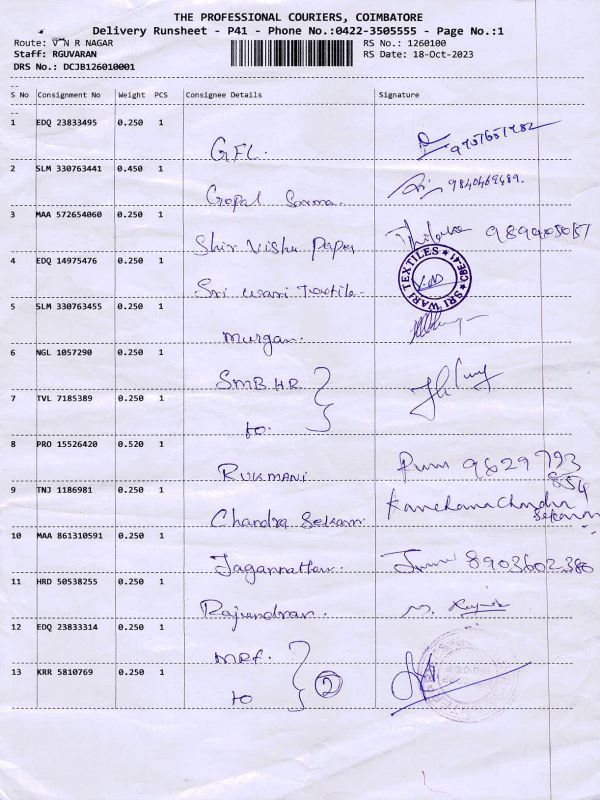 THE PROFESSIONAL COURIERS, COIMBATORE
Delivery Runsheet - P41 - Phone No.:0422-3505555 - Page No.:1
Route: V N R NAGAR RS No.: 1260100
Staff: RGUVARAN RS Date: 18-Oct-2023
DRS No.: DCJB126010001
S No Consignment No Weight PCS Consignee Details Signature
1 EDQ 23833495 0.250 1
GFL.
2 SLM 330763441 0.450 1
Gopal Sarma. 9840469489.
3 MAA 572654060 0.250 1
Shiv Vishu Paper
4 EDQ 14975476 0.250 1
SRI WARI TEXTILES CBE-41
Sri Wari Textile.
5 SLM 330763455 0.250 1
Murgan.
6 NGL 1057290 0.250 1
SMB HR
7 TVL 7185389 0.250 1
to.
8 PRO 15526420 0.520 1
RUKMANI 9629 793
854
9 TNJ 1186981 0.250 1
Chandra Sekaran. Kanchana Chandra
Sekaran
10 MAA 861310591 0.250 1
Jagannathan. 8903602380
11 HRD 50538255 0.250 1
Rajendran.
12 EDQ 23833314 0.250 1
MRF.
13 KRR 5810769 0.250 1
to 2